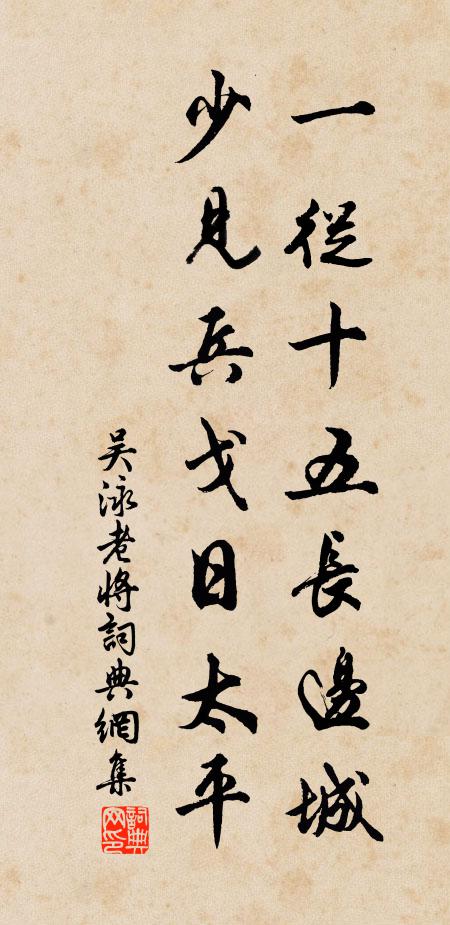 一從十五長邊城
少見兵戈日太平
吴泳老將詞典網集
詞典网印